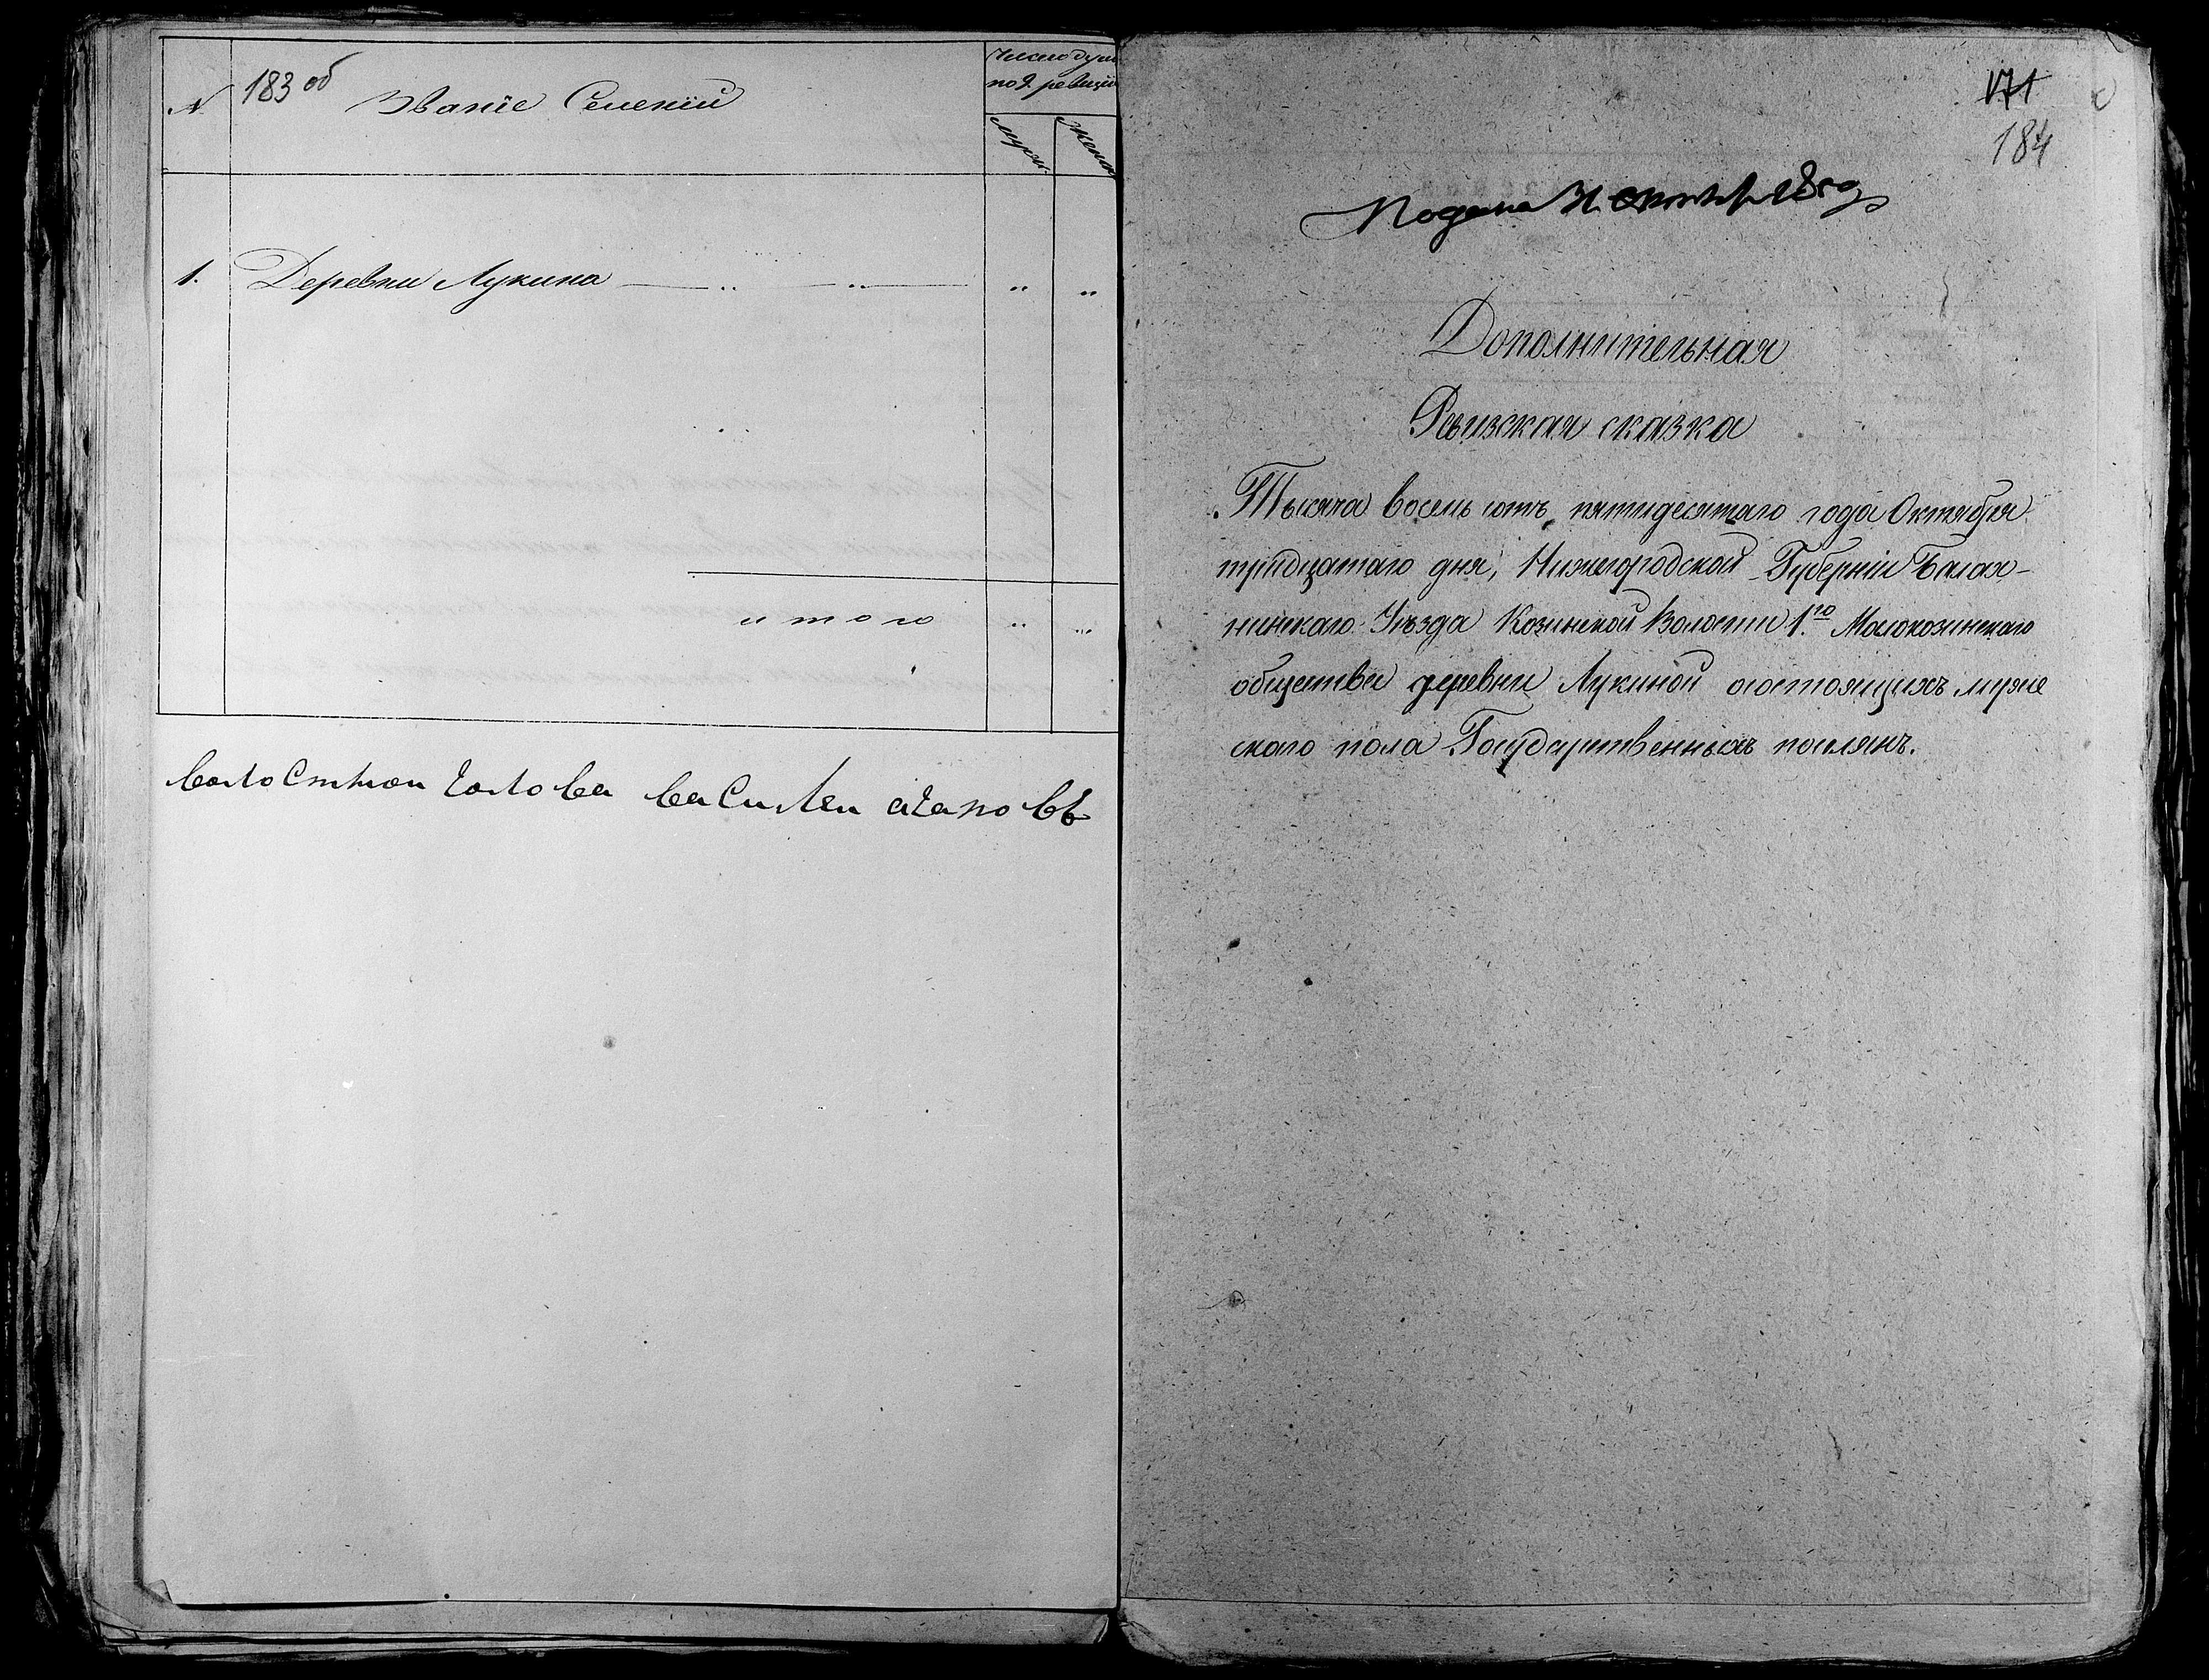 №
183 об
Званіе Селеній
Число душ
по 9 ревизіи
муж.
женс
1. Деревни Лукина — „ — „ — „ „
итого „ „
волостнои голова василеи агаповъ
171
184
Подана 31 октябр 1850
Дополнительная
Ревизская сказка
Тысяча восемь сотъ пятидесятаго года Октября
тридцатаго дня, Нижегородской Губерніи Балах-
нинскаго Уѣзда Козинской Волости 1.го Малокозинскаго
общества деревни Лукиной состоящихъ муже
скаго пола Государственныхъ поселянъ.